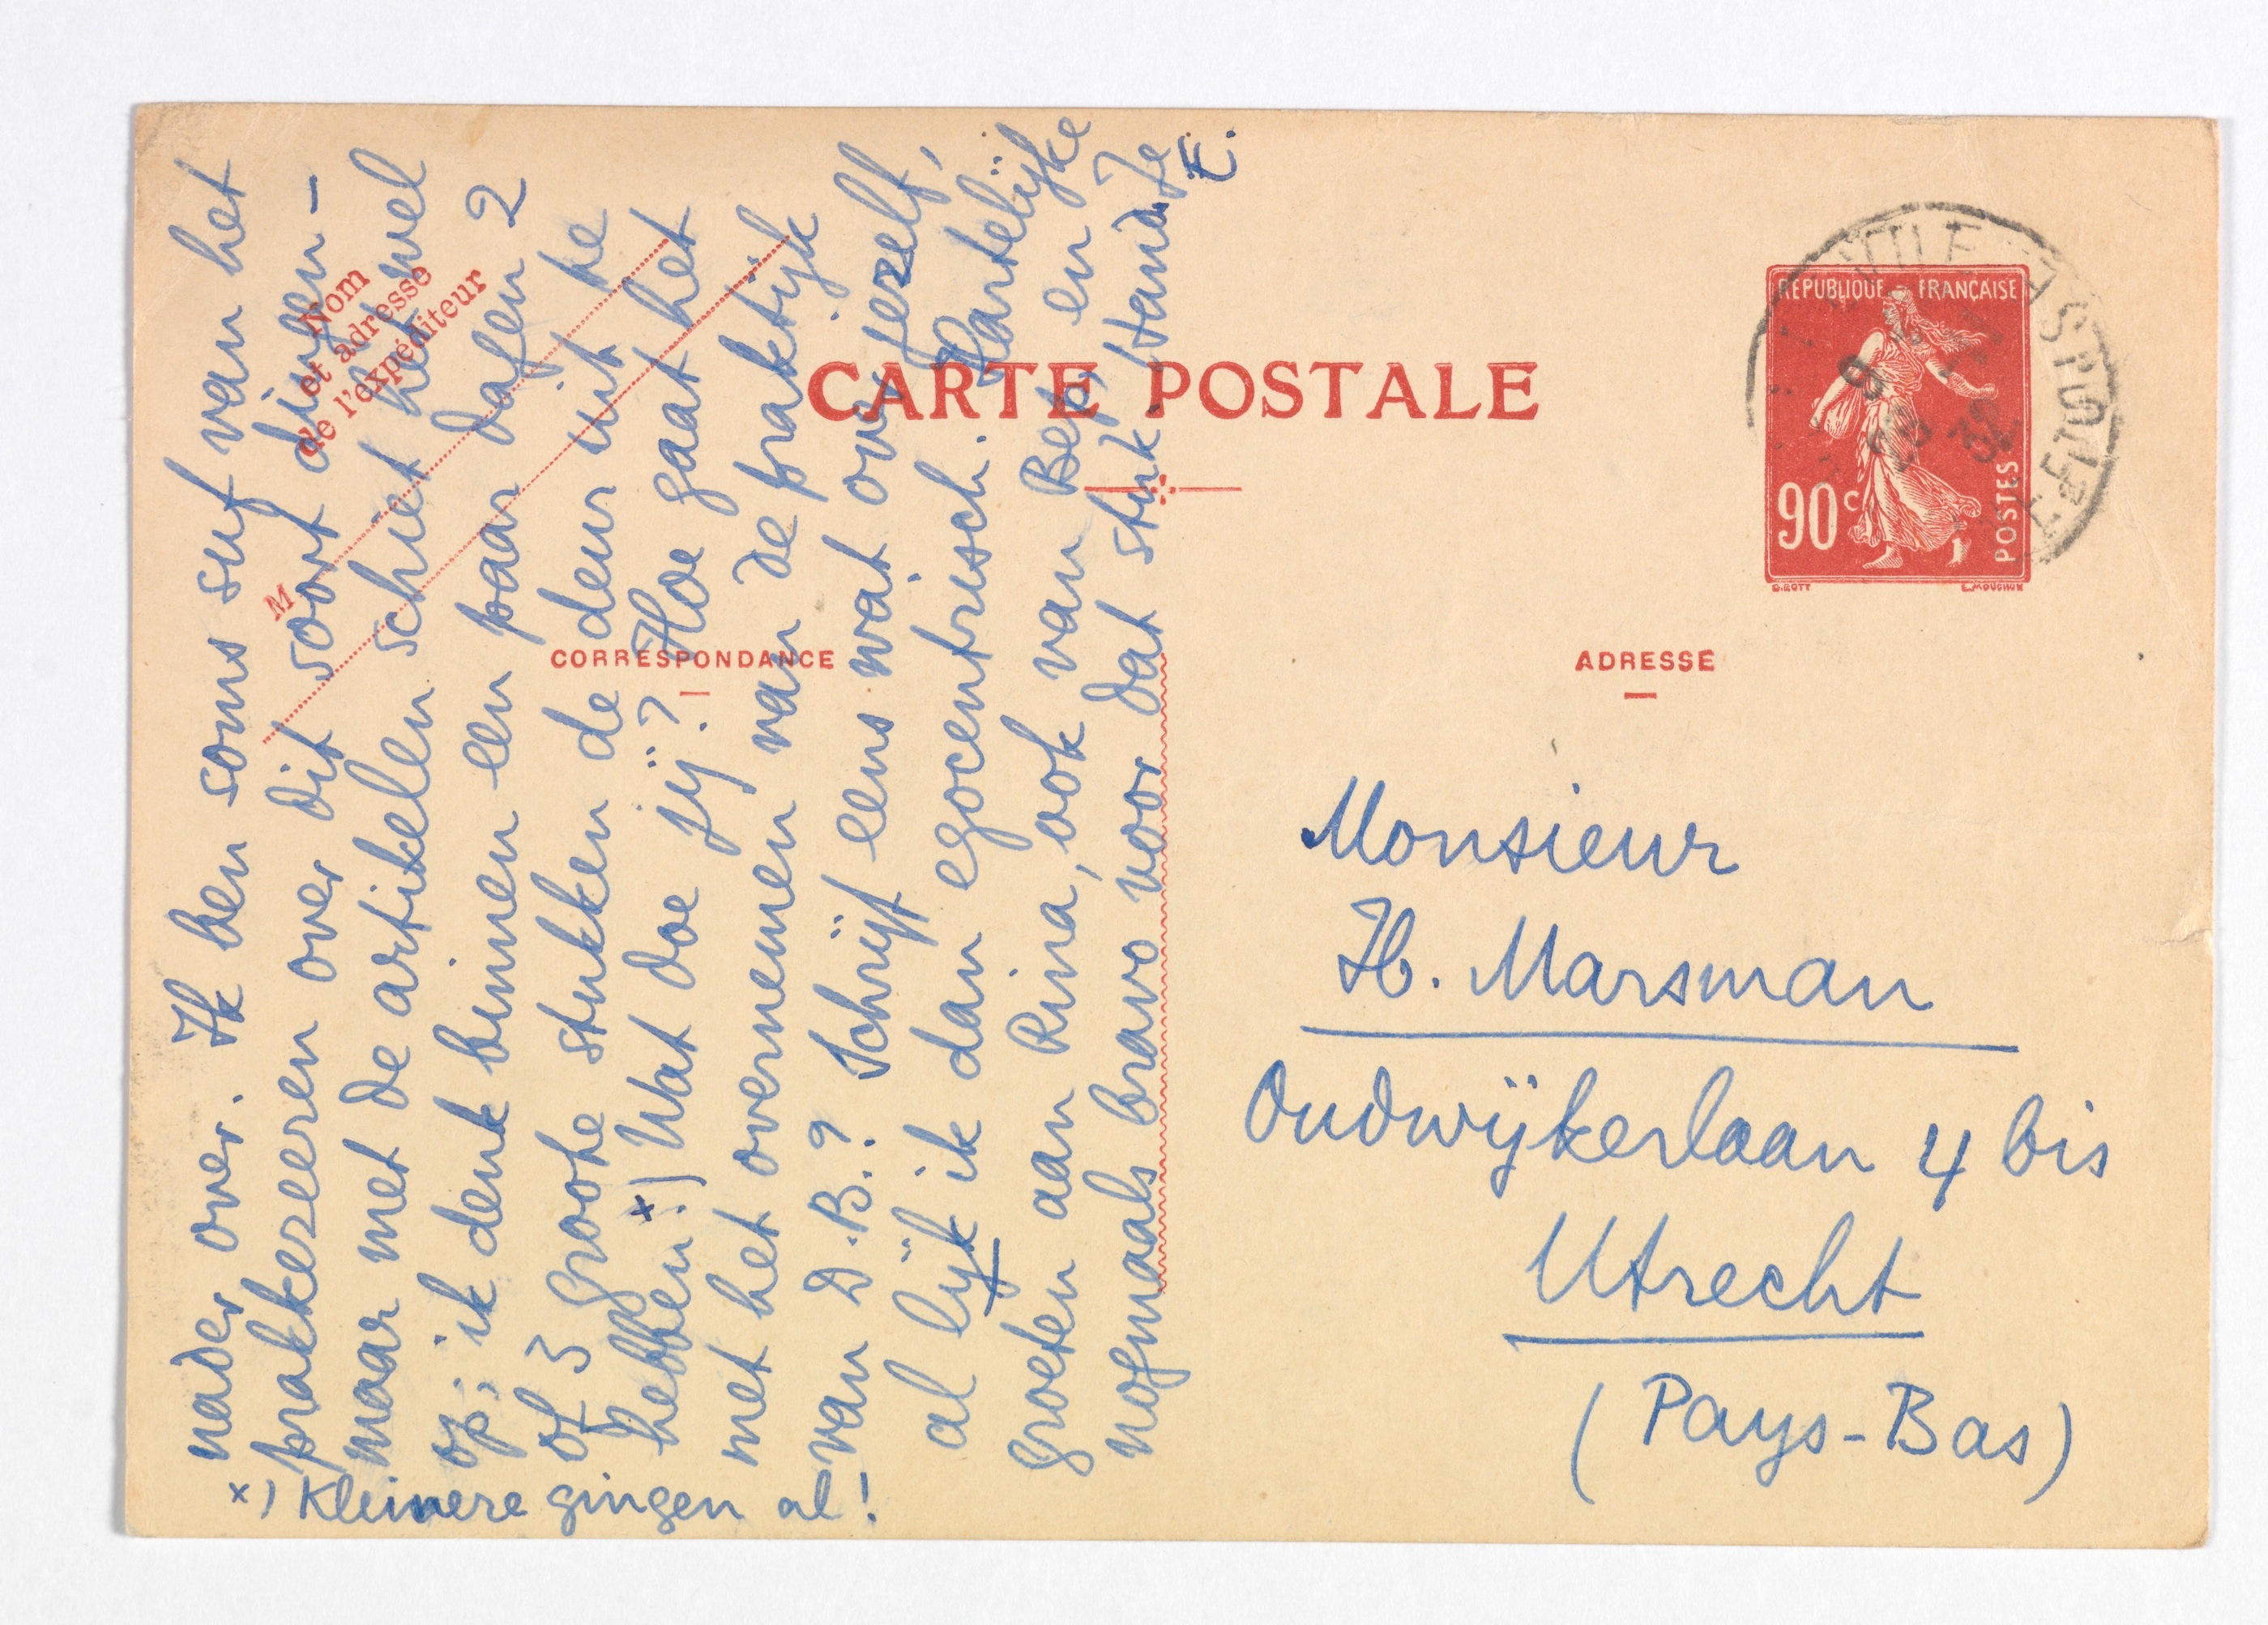 nader over. Ik ben soms suf van het
prakkezeeren over dit soort dingen –
maar met de artikelen schiet het wel
op; ik denk binnen een paar dagen 2
of 3 groote stukken de deur uit te
hebben. x) Wat doe jij? Hoe gaat het
met het overnemen van de praktijk
van D.B.? Schrijf eens wat over jezelf,
al lijk ik dan egocentrisch. Hartelijke
groeten aan Rina, ook van Bep, en
nogmaals bravo voor dat stuk. Hand. Je
E.
x) Kleinere gingen al!
Nom
et adresse
de l'expéditeur
M
CARTE POSTALE
CORRESPONDANCE
ADRESSE
REPUBLIQUE FRANÇAISE
90c
POSTES
O.ROTY
E.MOUCHON
9
32
Monsieur
H. Marsman
Oudwijkerlaan 4 bis
Utrecht
(Pays-Bas)